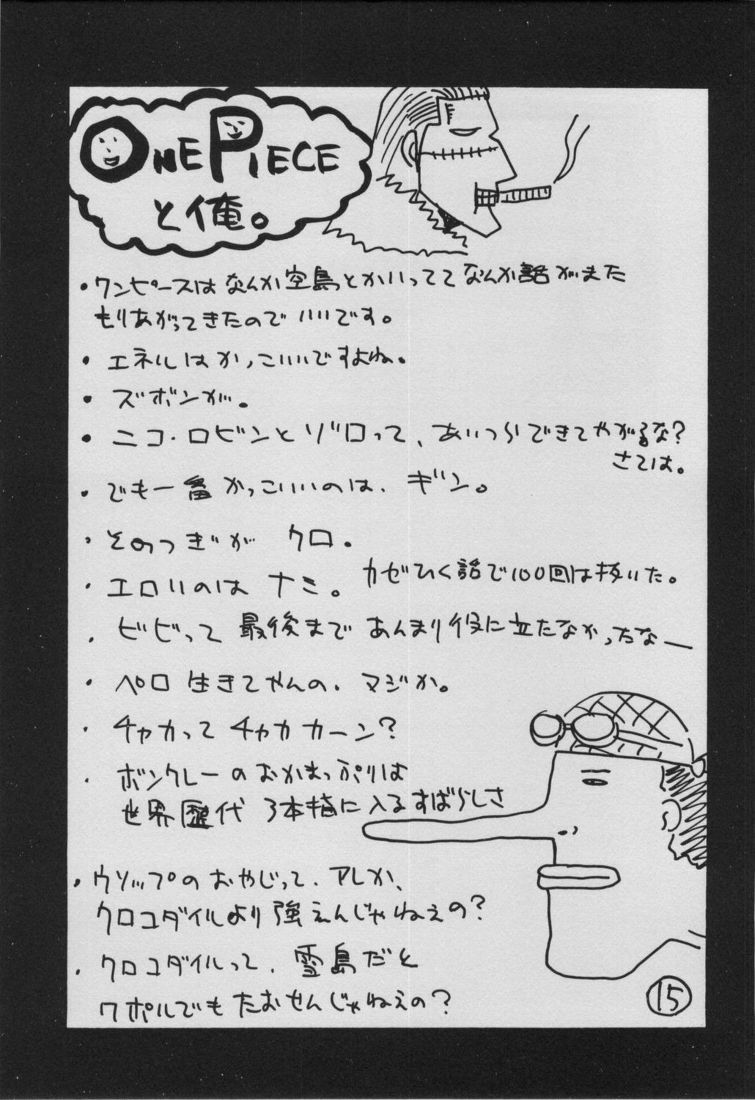 ONE PIECE
と俺。
・ワンピースはなんか空島とかいっててなんか話がまた
もりあがってきたのでいいです。
・エネルはかっこいいですよね。
・ズボンが。
・ニコ・ロビンとゾロって、あいつらできてやがるな?
さては。
・でも一番かっこいいのは、ギン。
・そのつぎが クロ。
・エロいのは ナミ。カゼひく話で100回は抜いた。
・ビビって 最後まで あんまり役に立たなかったなー
・ペロ 生きてやんの。マジか。
・チャカって チャカ カーン?
・ボンクレーのおかまっぷりは
世界歴代 3本指に入るすばらしさ
・ウソップのおやじって、アレか、
クロコダイルより強えんじゃねえの?
・クロコダイルって、雪島だと
ワポルでもたおせんじゃねえの?
15